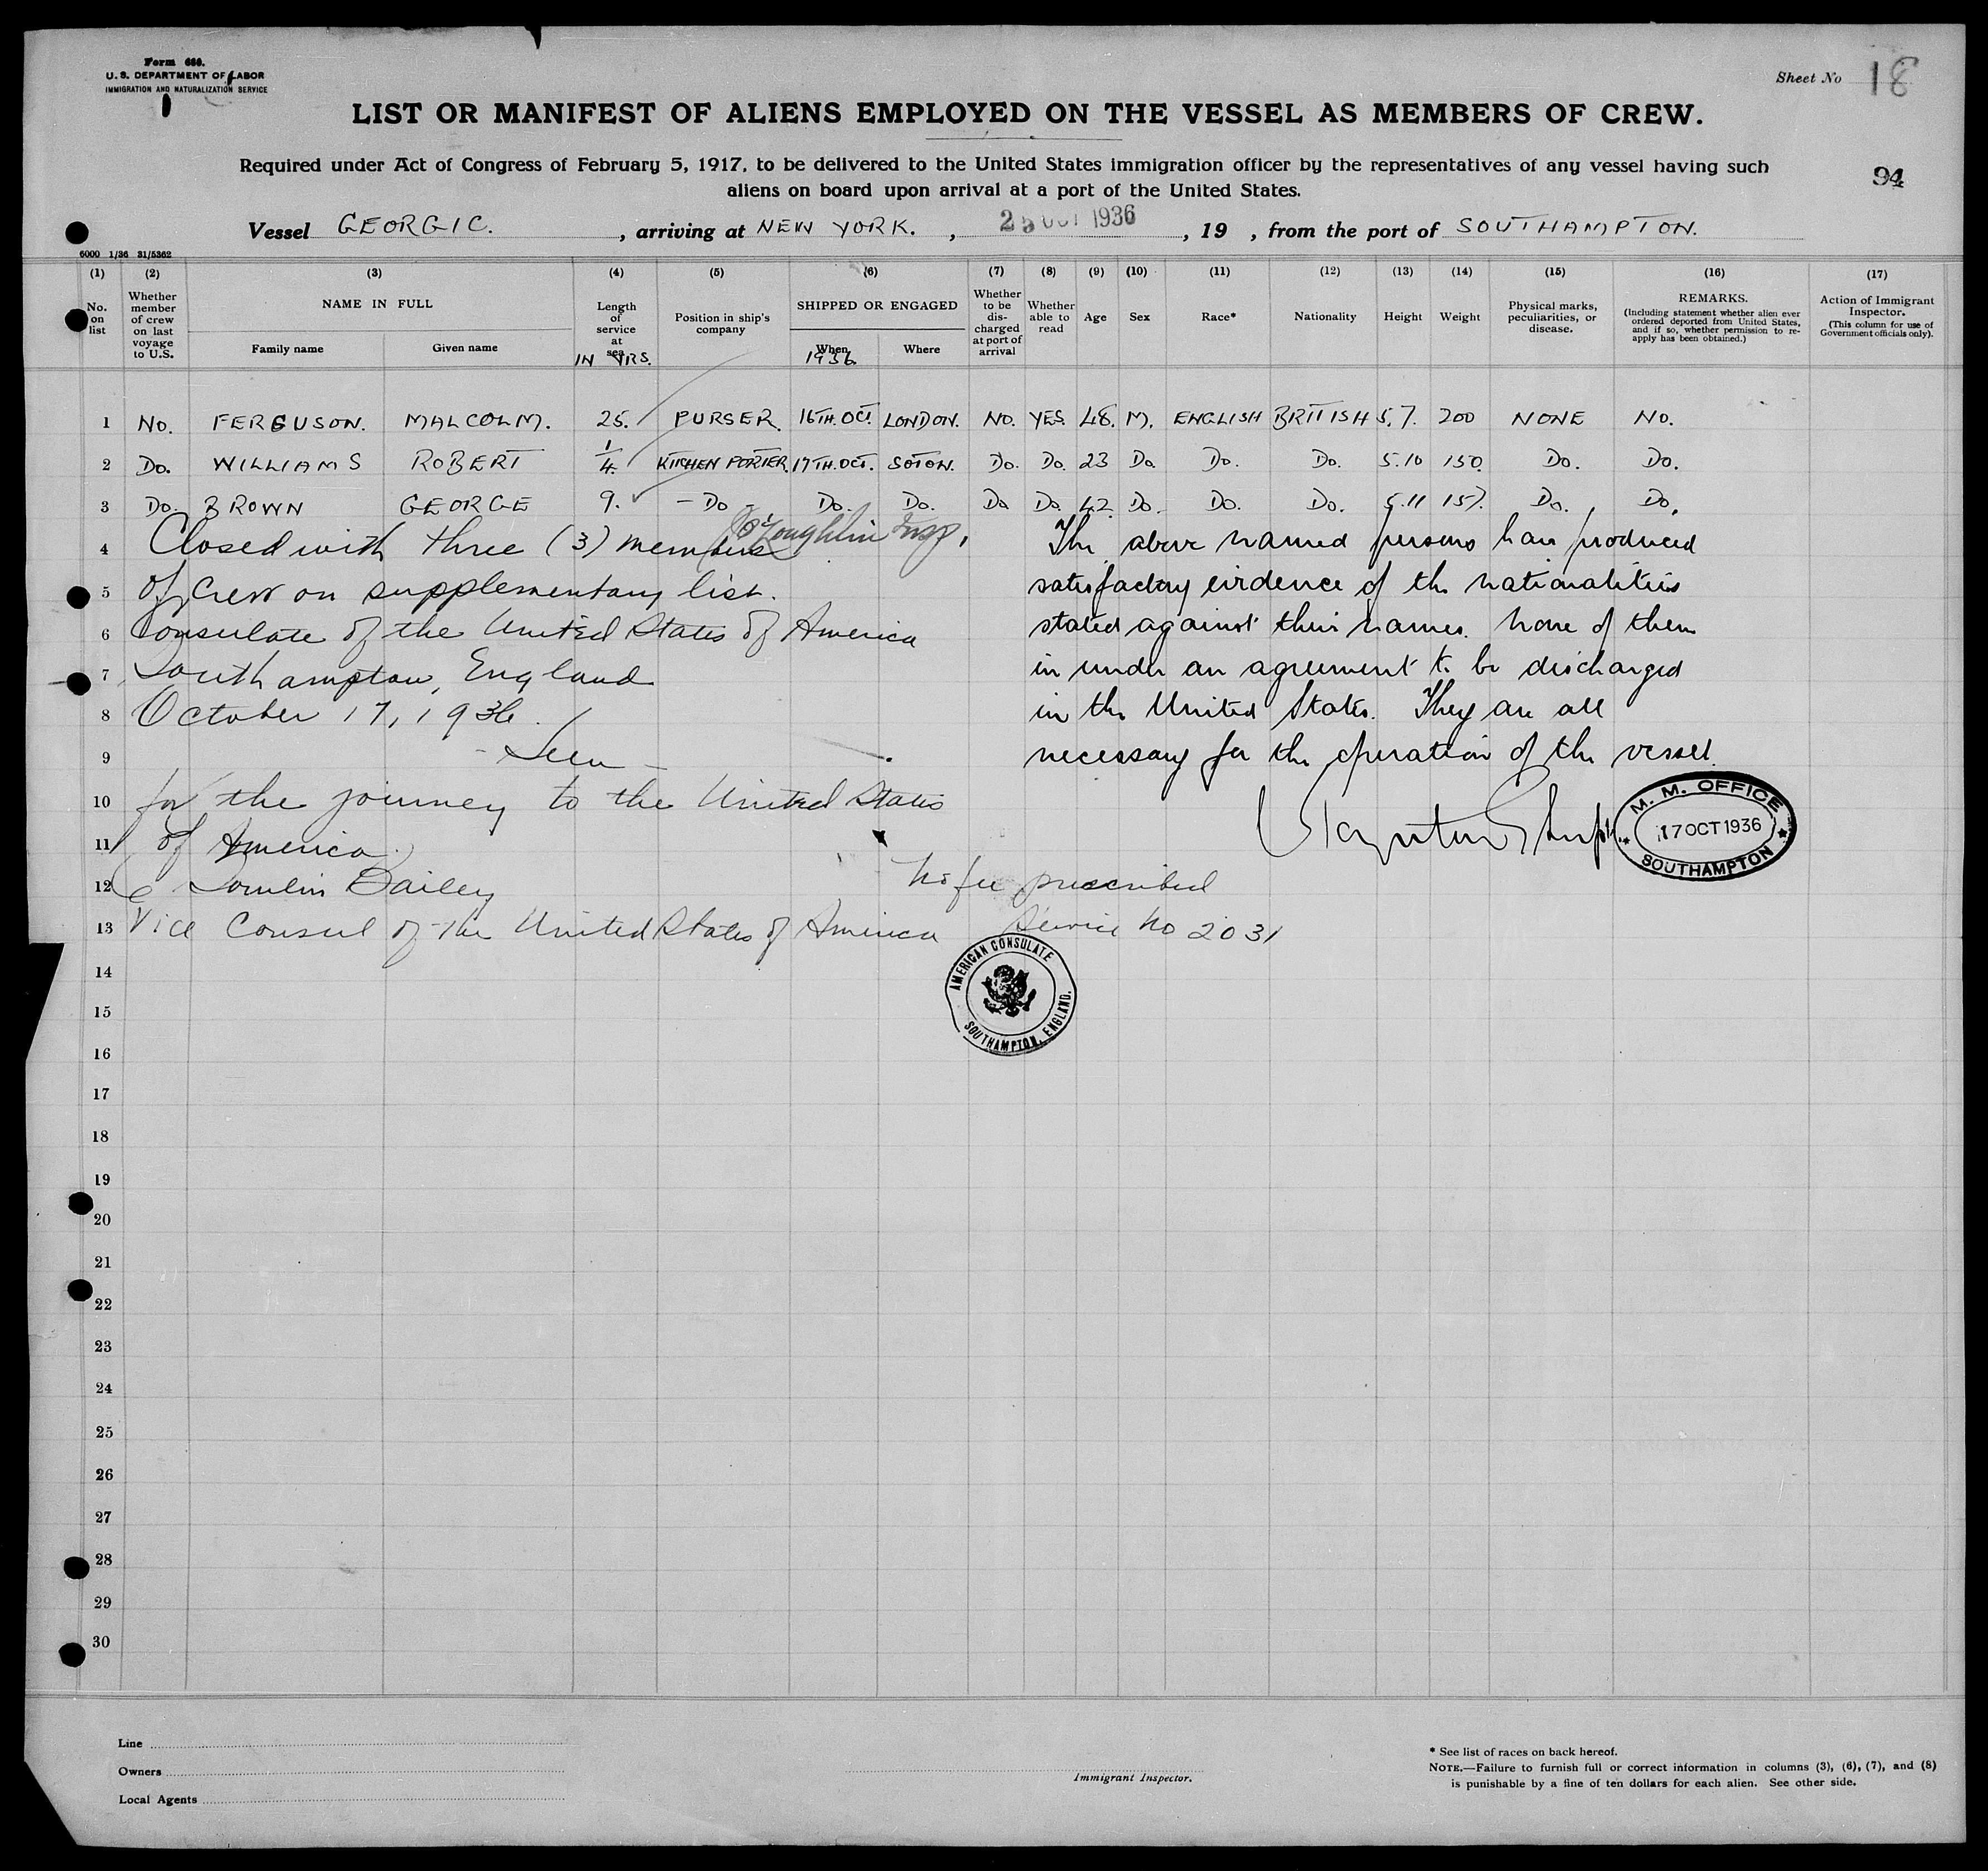 Form 680.
U. S. DEPARTMENT OF LABOR
IMMIGRATION AND NATURALIZATION SERVICE
Sheet No 18
LIST OR MANIFEST OF ALIENS EMPLOYED ON THE VESSEL AS MEMBERS OF CREW.
Required under Act of Congress of February 5, 1917, to be delivered to the United States immigration officer by the representatives of any vessel having such
aliens on board upon arrival at a port of the United States.
94
Vessel GEORGIC. , arriving at NEW YORK. , 25 OCT 1936 , 19 , from the port of SOUTHAMPTON.
6000 1/36 31/5362
(1) (2) (3) (4) (5) (6) (7) (8) (9) (10) (11) (12) (13) (14) (15) (16) (17)
No. on list
Whether member of crew on last voyage to U.S.
NAME IN FULL
Family name
Given name
Length of service at sea
IN YRS.
Position in ship's company
SHIPPED OR ENGAGED
When
1936
Where
Whether to be discharged at port of arrival
Whether able to read
Age
Sex
Race*
Nationality
Height
Weight
Physical marks, peculiarities, or disease.
REMARKS.
(Including statement whether alien ever ordered deported from United States, and if so, whether permission to re-apply has been obtained.)
Action of Immigrant Inspector.
(This column for use of Government officials only).
1 No. FERGUSON. MALCOLM. 25. PURSER. 16TH. OCT. LONDON. NO. YES. 48. M. ENGLISH BRITISH 5.7. 200 NONE No.
2 Do. WILLIAMS ROBERT 1/4. KITCHEN PORTER. 17TH. OCT. SOTON. Do. Do. 23 Do. Do. Do. 5.10 150. Do. Do.
3 Do. BROWN GEORGE 9. - Do - Do. Do. Do Do. 42. Do. Do. Do. 5.11 157. Do. Do.
4 Closed with three (3) members
5 of crew on supplementary list.
6 Consulate of the United States of America
7 Southampton, England
8 October 17, 1936.
9 - Seen -
10 for the journey to the United States
11 of America.
12 Tomlin Bailey
13 Vice Consul of the United States of America
The above named persons have produced
satisfactory evidence of the nationalities
stated against their names. None of them
is under an agreement to be discharged
in the United States. They are all
necessary for the operation of the vessel.
M. M. OFFICE
17 OCT 1936
SOUTHAMPTON
No fee prescribed
Service No 2031
AMERICAN CONSULATE
SOUTHAMPTON, ENGLAND.
14
15
16
17
18
19
20
21
22
23
24
25
26
27
28
29
30
Line
Owners
Local Agents
Immigrant Inspector.
* See list of races on back hereof.
NOTE.—Failure to furnish full or correct information in columns (3), (6), (7), and (8)
is punishable by a fine of ten dollars for each alien. See other side.